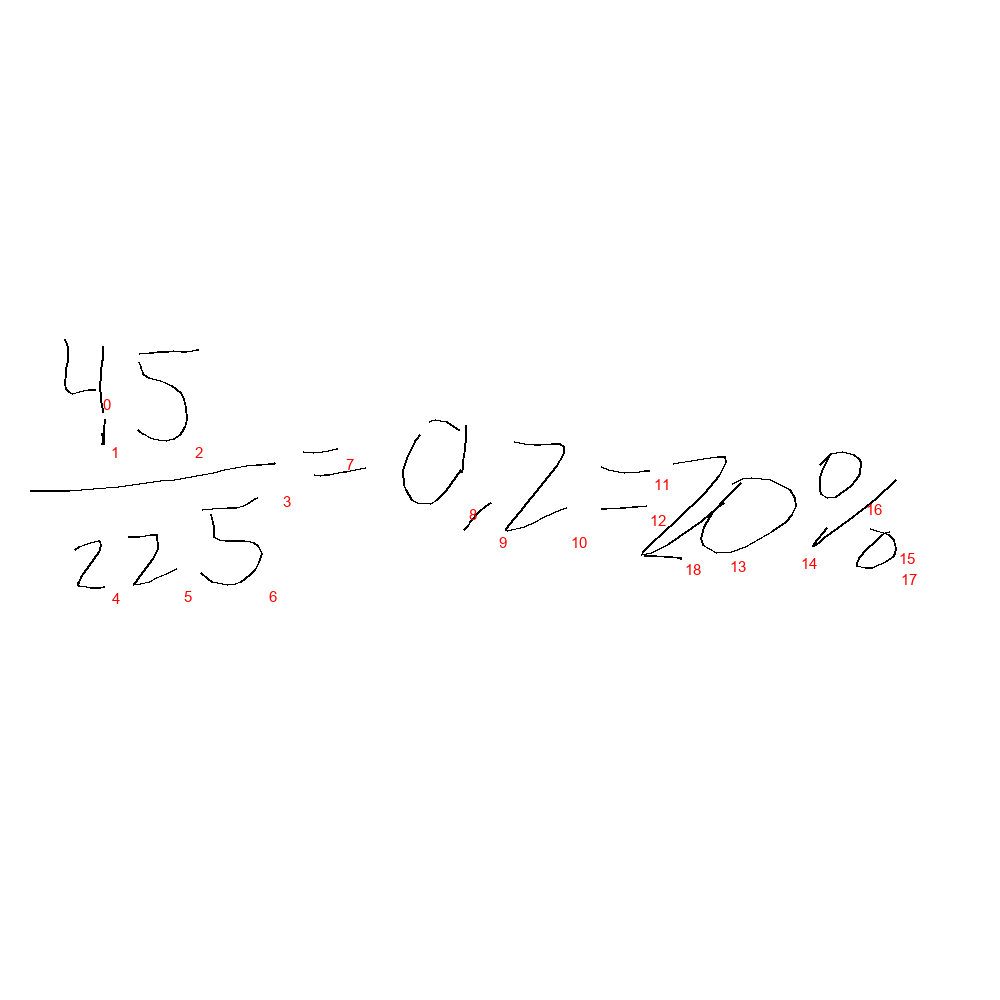 45
225
= 0,2 = 20%
0
1
2
3
4
5
6
7
8
9
10
11
12
13
14
15
16
17
18